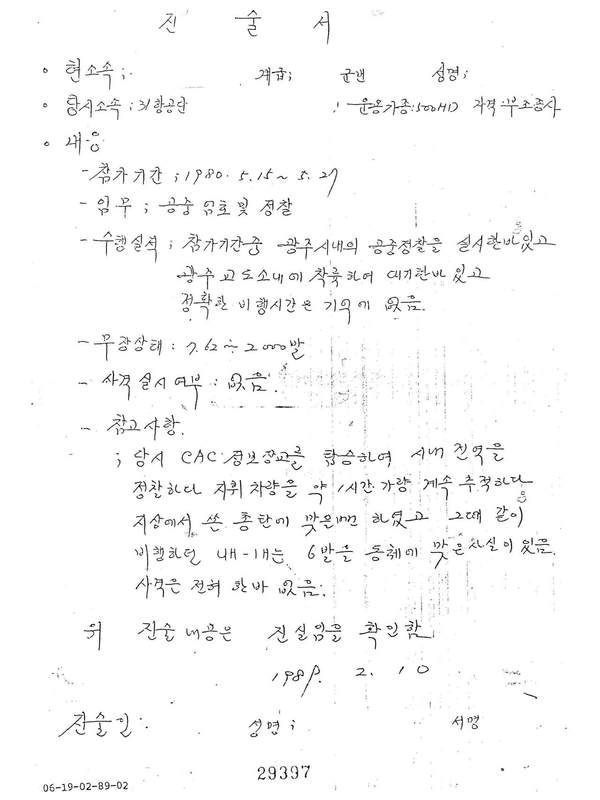 진 술 서
현소속 ; 계급; 군번 성명;
당시소속 ; 31항공단 ; 운용기종:500MD 자격:부조종사
내용
- 참가기간 ; 1980. 5.15 ~ 5.27
- 임무 ; 공중 엄호 및 정찰
- 수행실적 ; 참가기간중 광주시내의 공중정찰을 실시한바 있고
광주 교도소내에 착륙하여 대기한바 있고
정확한 비행시간은 기억에 없음.
- 무장상태 : 7.62 ÷ 2000발
- 사격실시여부 : 없음.
- 참고사항.
; 당시 CAC 정보장교를 탑승하여 시내 전역을
정찰하다 지휘 차량을 약 1시간 가량 계속 추적하다
지상에서 쏜 총탄에 맞을뻔 하였고 그때 같이
비행하던 1대는 6발을 동체에 맞은 사실이 있음.
사격은 전혀 한바 없음.
위 진술 내용은 진실임을 확인함
1989. 2. 10
진술인: 성명 ; 서명
29397
06-19-02-89-02